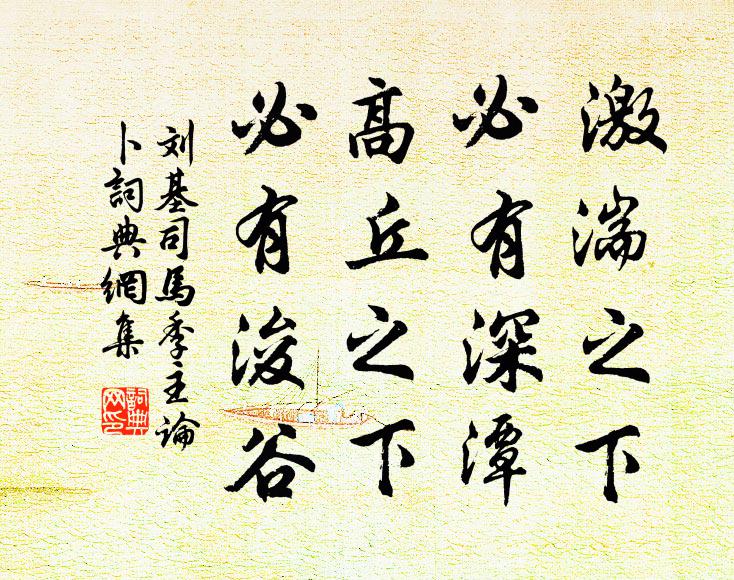 激湍之下
必有深潭
高丘之下
必有浚谷
刘基司馬季主論
卜詞典網集
詞典
网印